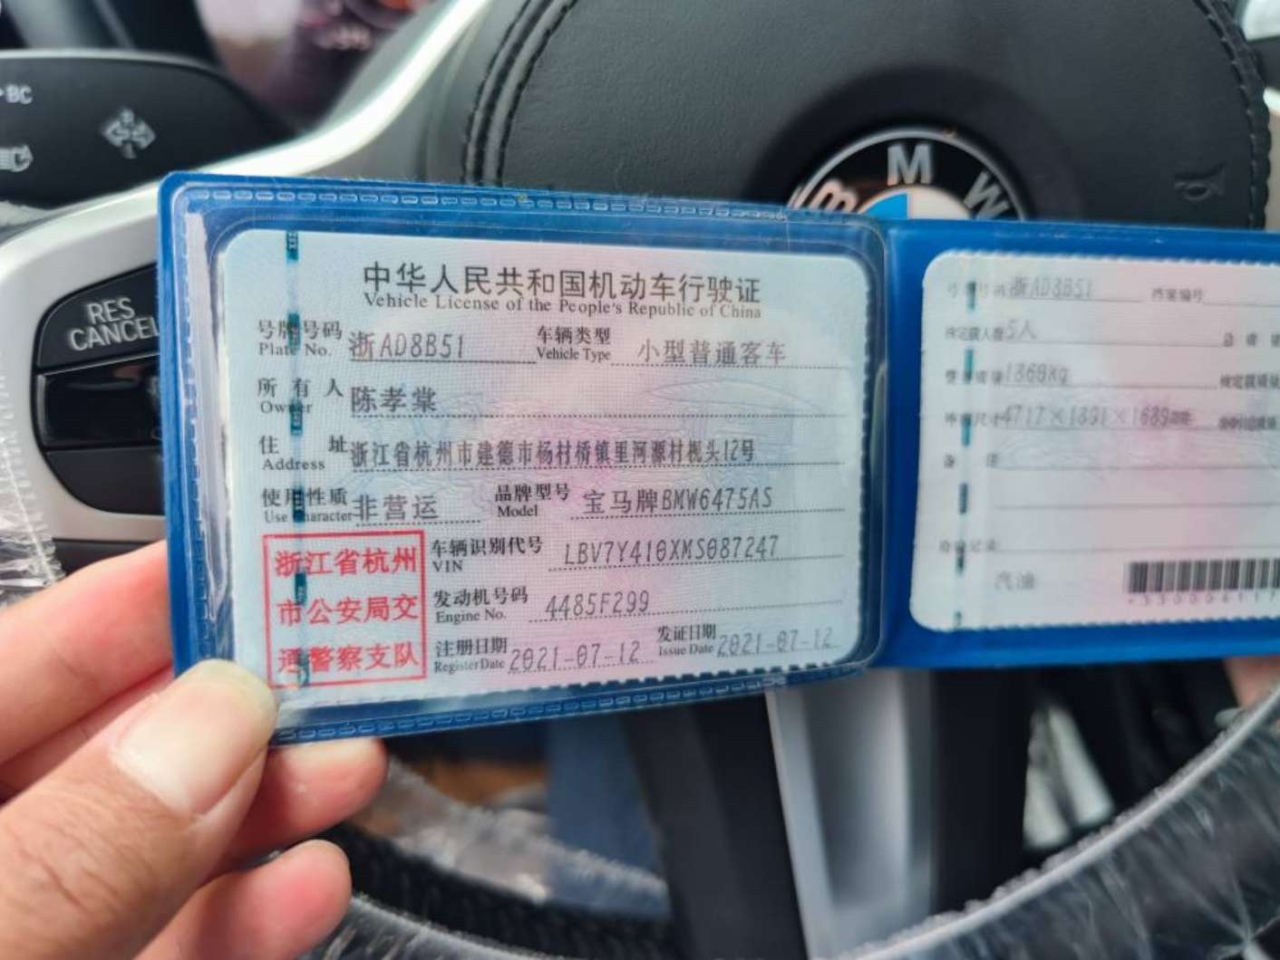 BC
RES
CANCEL
BMW
中华人民共和国机动车行驶证
Vehicle License of the People's Republic of China
号牌号码 浙AD8B51 车辆类型 小型普通客车
Plate No. Vehicle Type
所有人 陈孝棠
Owner
住址 浙江省杭州市建德市杨村桥镇里河源村枧头12号
Address
使用性质 非营运 品牌型号 宝马牌BMW6475AS
Use Character Model
浙江省杭州
市公安局交
通警察支队
车辆识别代号 LBV7Y410XMS087247
VIN
发动机号码 4485F299
Engine No.
注册日期 2021-07-12 发证日期 2021-07-12
Register Date Issue Date
号牌号码 浙AD8B51 档案编号
核定载人数 5人
整备质量 1860kg
4717×1891×1689
备注
检验记录
汽油